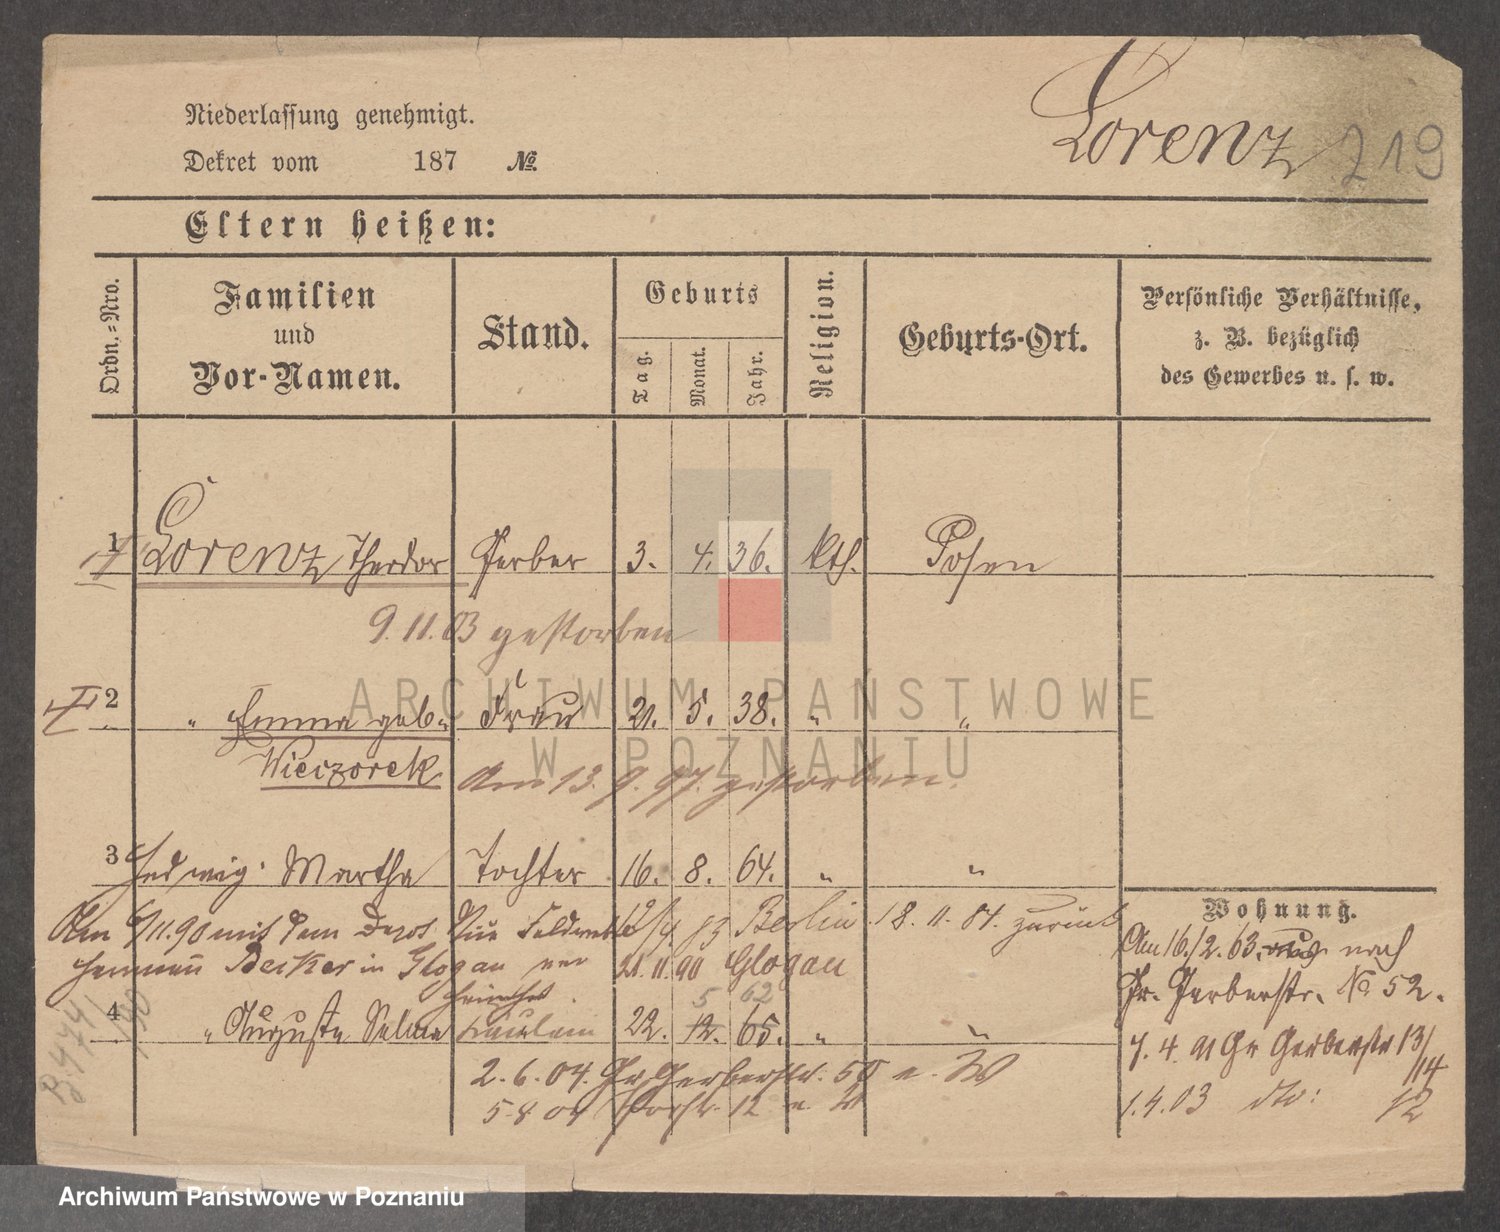 Lorenz 219
Niederlassung genehmigt.
Dekret vom 187 №
Eltern heißen:
Ordn.-Nro.
Familien
und
Vor-Namen.
Stand.
Geburts
Tag.
Monat.
Jahr.
Religion.
Geburts-Ort.
Persönliche Verhältnisse,
z. B. bezüglich
des Gewerbes u. s. w.
1 Lorenz, Theodor Gerber 3. 4. 36. kth. Posen
9.11.03 gestorben
ARCHIWUM PAŃSTWOWE
2 " Emma geb. Frau 21. 5. 38. " "
W POZNANIU
Wieczorek am 13. 9. 97. gestorben.
3 Hedwig Martha Tochter 16. 8. 64. " "
Am 6/11.90 mit dem 83 Berlin 18. 11. 84. zurück
Becker in Glogau 21. 11 90 Glogau
5 62
4 " Auguste Selma 22. 12. 65. " "
2. 6. 04. Gr. Gerberstr. 50
5 8 04 12
B 474/190
Wohnung.
Am 16./2. 63. nach
Gr. Gerberstr. No 52.
7. 4. 91 Gr Gerberstr 13/14
1.4.03 dto: 12
Archiwum Państwowe w Poznaniu